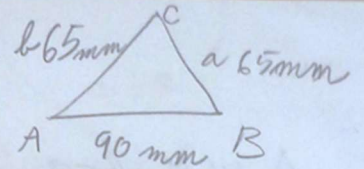 C
b 65mm
a 65mm
A
90 mm
B